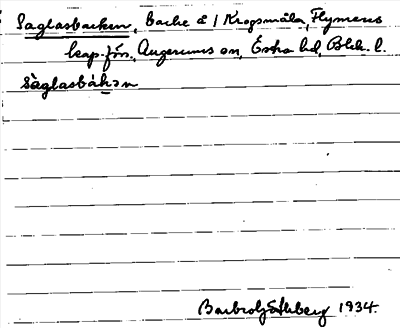 Saglasbacken, backe å 1 Krogsmåla, Flymens
kap.förs., Augerums sn, Östra hd, Blek. l.
sàglasbákən
Barbro Ahlberg 1934.